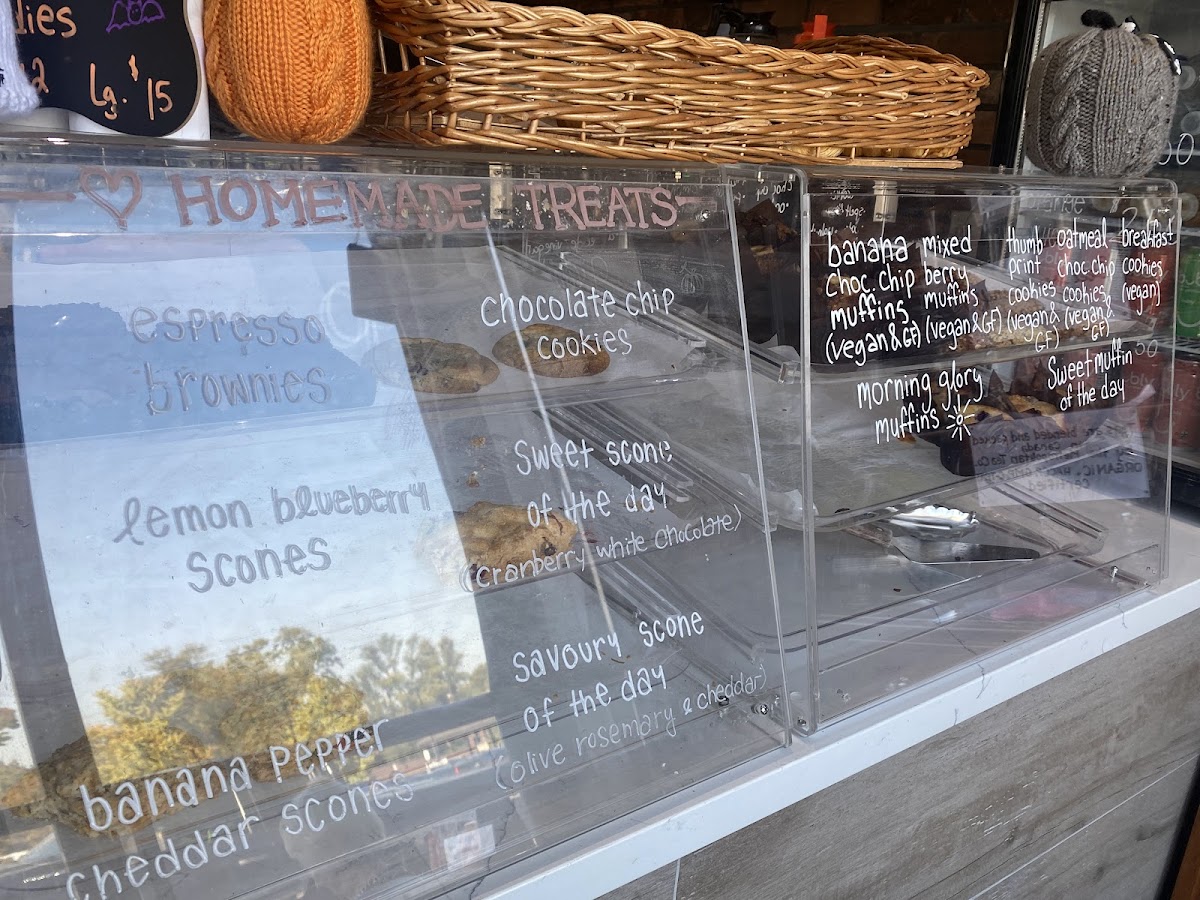 dies
Lg. $15
HOMEMADE TREATS
espresso
brownies
chocolate chip
cookies
lemon blueberry
scones
Sweet scone
of the day
(cranberry white chocolate)
banana pepper
cheddar scones
savoury scone
of the day
(olive rosemary & cheddar)
banana
choc. chip
muffins
(vegan & GF)
mixed
berry
muffins
(vegan & GF)
thumb
print
cookies
(vegan &
GF)
oatmeal
choc. chip
cookies
(vegan &
GF)
Breakfast
cookies
(vegan)
morning glory
muffins
Sweet muffin
of the day